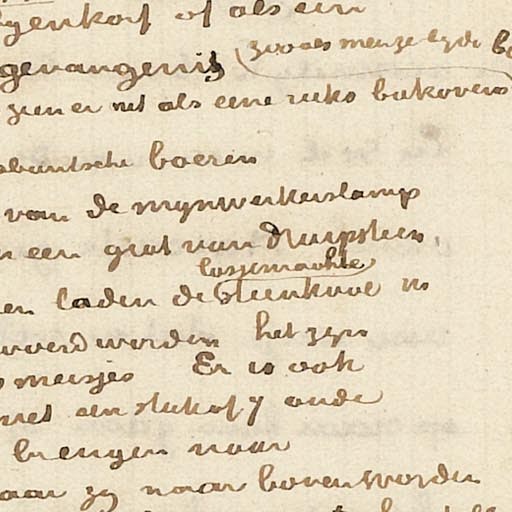 genkorf of als een
gevangenis (zooals men ze by de
zien er net als eene reeks bakovens
abantsche boeren
van de mynwerkerslamp
een grot van druipsteen,
losgemaakte
en laden de steenkool in
voerd worden het zyn
meisjes Er is ook
met een stuk of 7 oude
brengen naar
aar zy naar boven worden